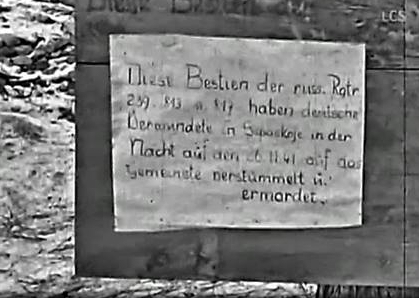 Diese Bestien
LCS
Diese Bestien der russ. Rgtr
239, 813 u. 817 haben deutsche
Verwundete in in der
Nacht auf den 26.11.41 auf das
gemeinste verstümmelt u.
ermordet.